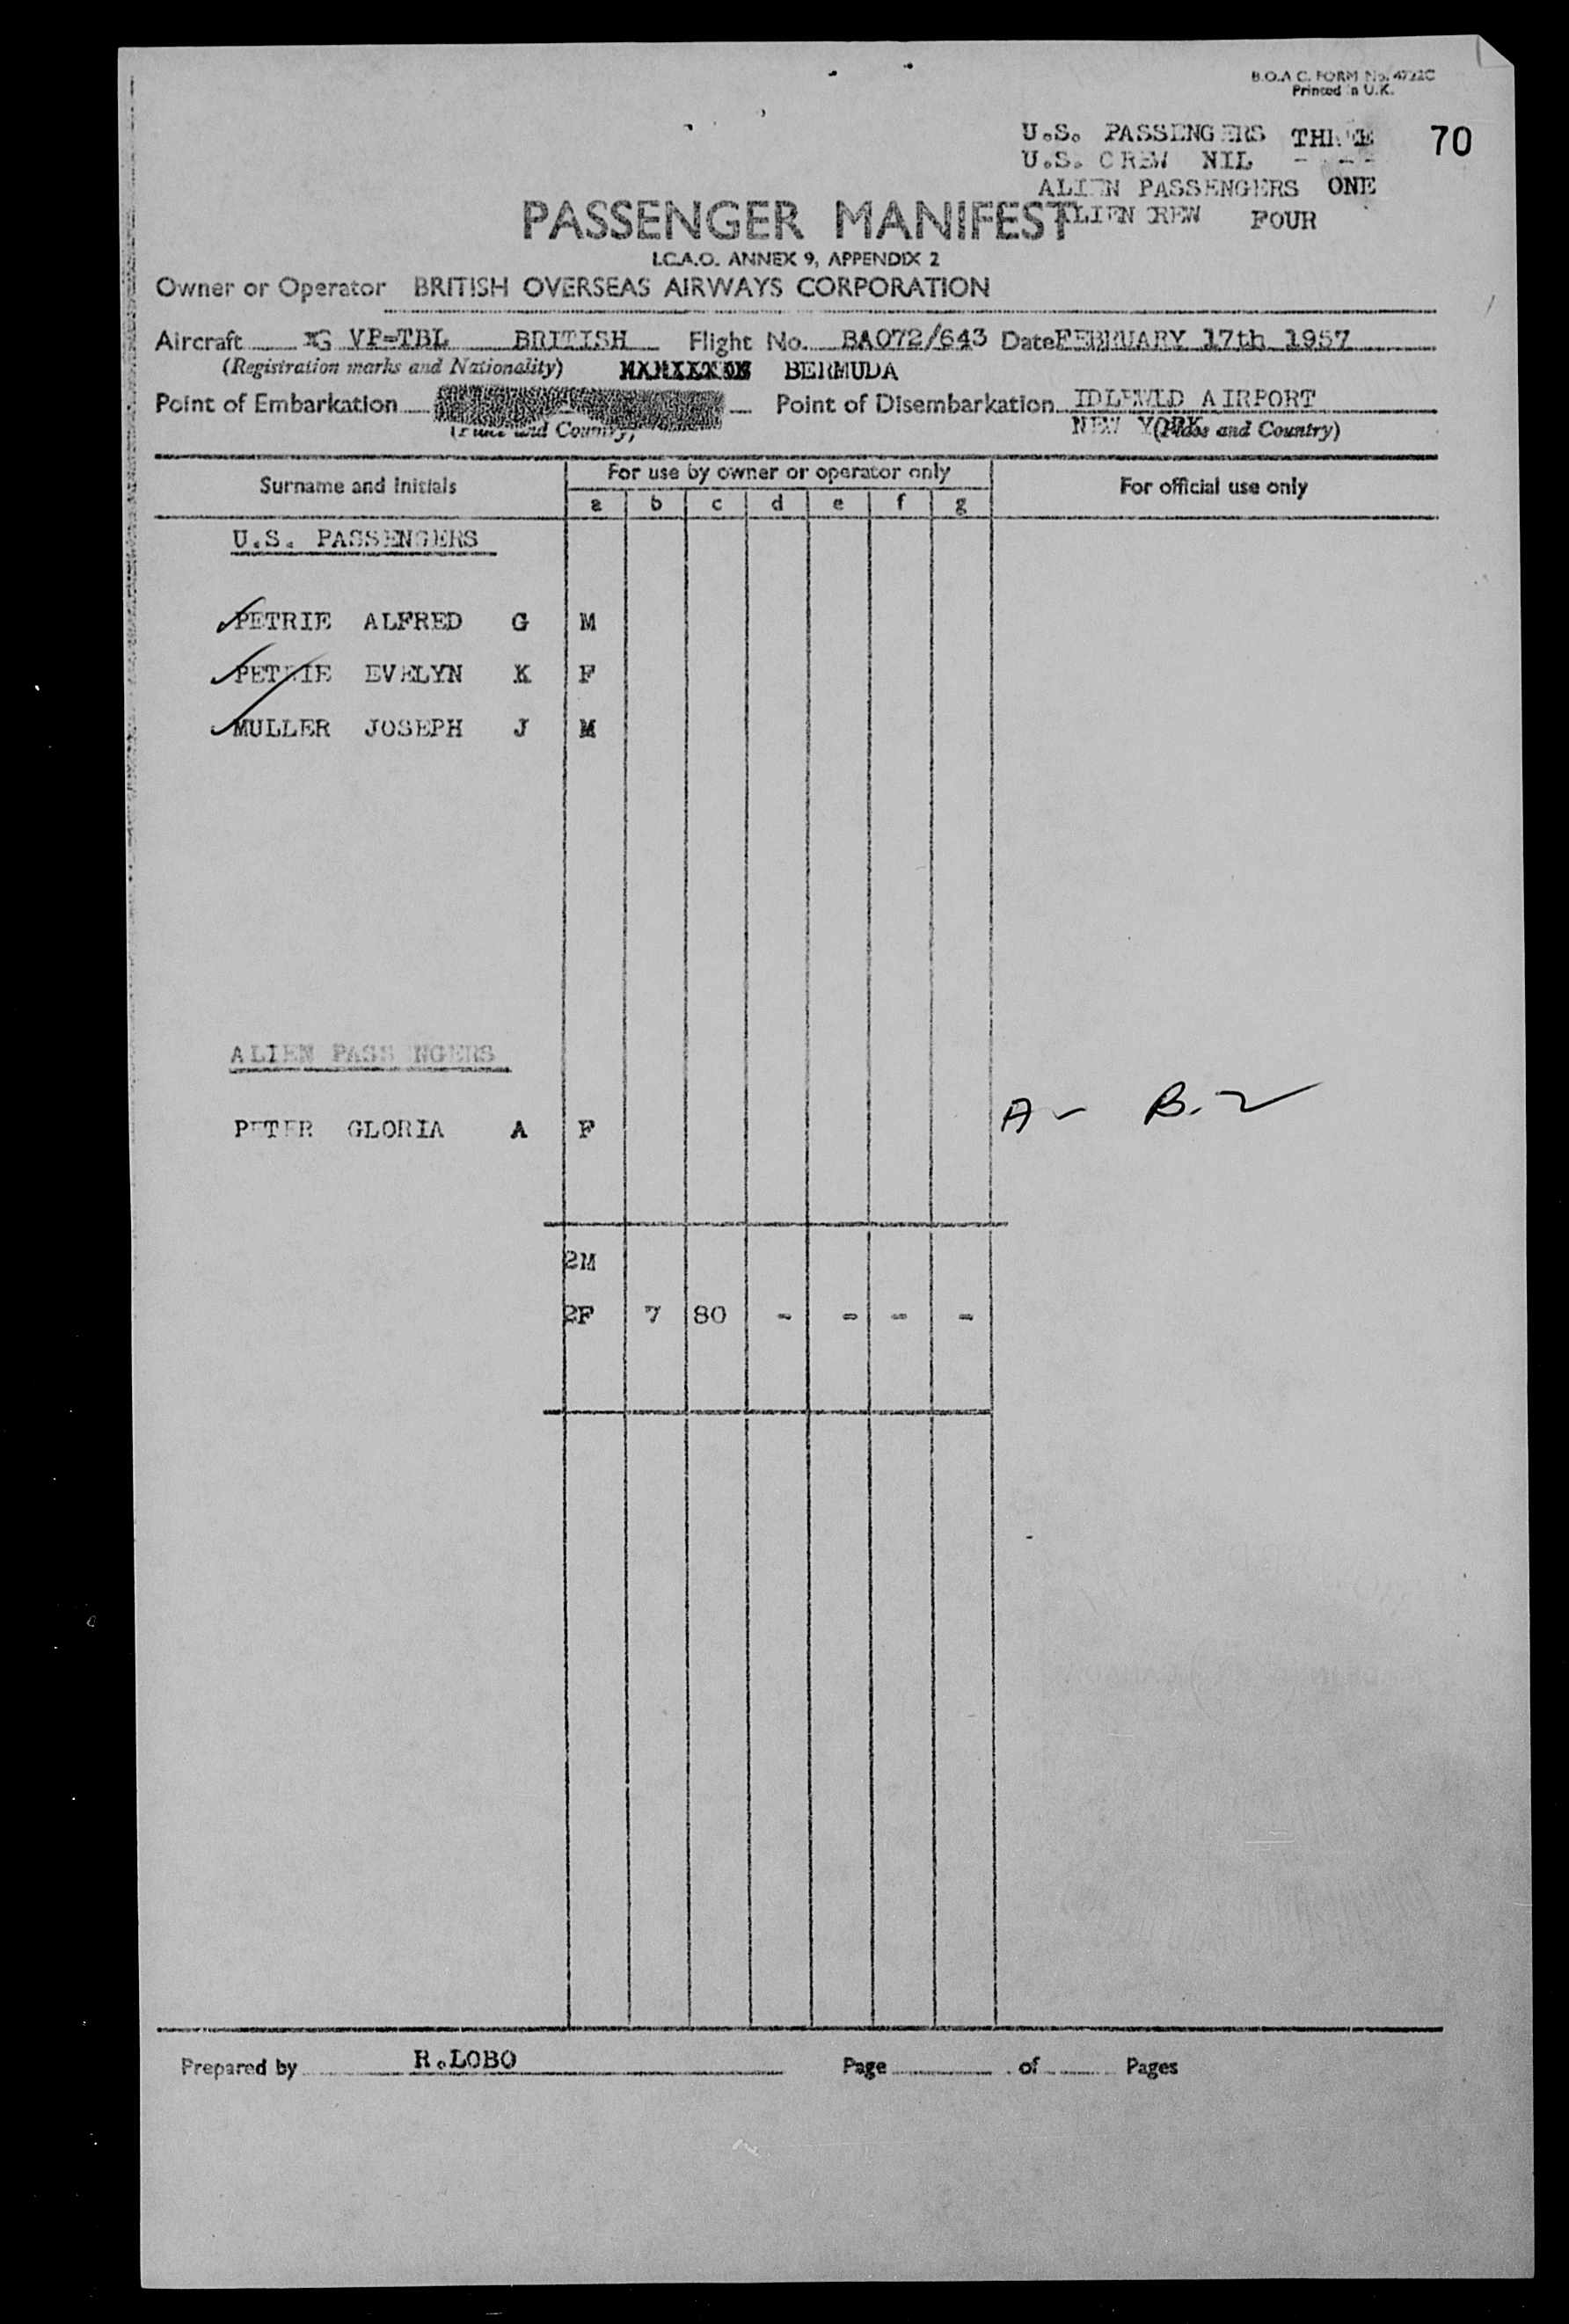 B.O.A.C. FORM No. 4722C
Printed in U.K.
U.S. PASSENGERS THREE 70
U.S. CREW NIL - - - -
ALIEN PASSENGERS ONE
ALIEN CREW FOUR
PASSENGER MANIFEST
I.C.A.O. ANNEX 9, APPENDIX 2
Owner or Operator BRITISH OVERSEAS AIRWAYS CORPORATION
Aircraft VP=TBL BRITISH Flight No. BA072/643 Date FEBRUARY 17th 1957
(Registration marks and Nationality) BERMUDA
Point of Embarkation Point of Disembarkation IDLEWLD AIRPORT
(Place and Country) NEW YORK (Place and Country)
Surname and Initials For use by owner or operator only For official use only
a b c d e f g
U.S. PASSENGERS
PETRIE ALFRED G M
PETRIE EVELYN K F
MULLER JOSEPH J M
ALIEN PASSENGERS
PETER GLORIA A F A - B-2
2M
2F 7 80 - - - -
Prepared by R.LOBO Page of Pages